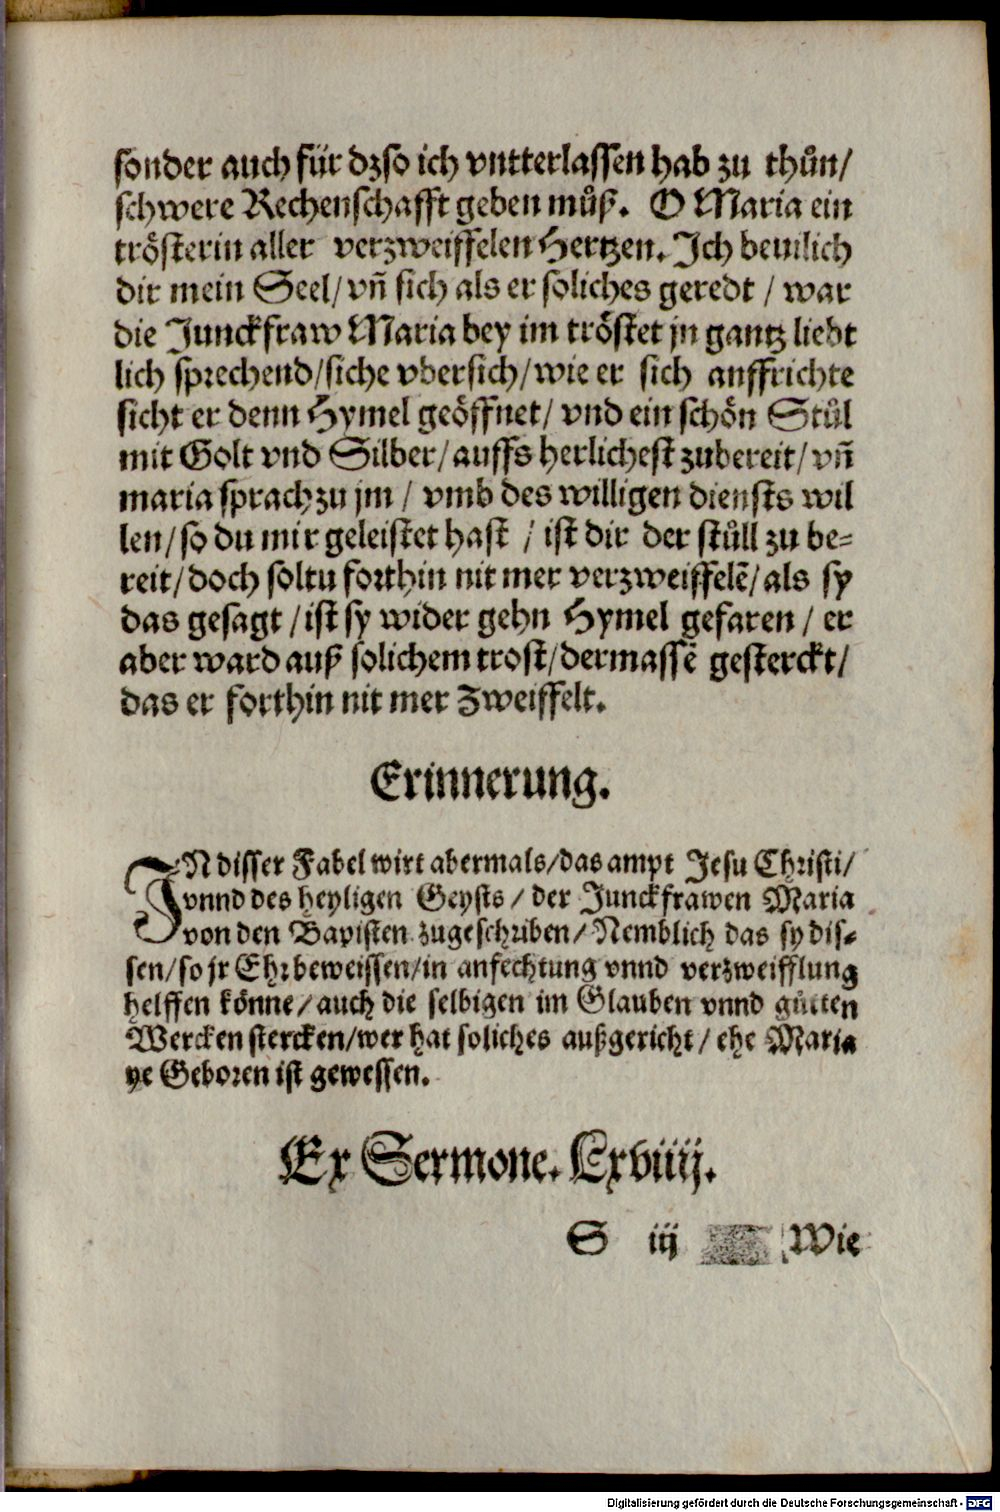 sonder auch für dzso ich vntterlassen hab zu thůn/
schwere Rechenschafft geben můß. O Maria ein
trösterin aller verzweiffelen Hertzen. Ich beuilich
dir mein Seel/ vñ sich als er soliches geredt / war
die Junckfraw Maria bey im tröstet jn gantz liebt
lich sprechend/siche vbersich/wie er sich auffrichte
sicht er denn Hymel geöffnet/ vnd ein schön Stůl
mit Golt vnd Silber/auffs herlichest zubereit/ vñ
maria sprach zu jm / vmb des willigen diensts wil
len/so du mir geleistet hast / ist dir der stůll zu be-
reit/doch soltu forthin nit mer verzweiffelẽ/als sy
das gesagt /ist sy wider gehn Hymel gefaren / er
aber ward auß solichem trost/dermassẽ gesterckt/
das er forthin nit mer Zweiffelt.
Erinnerung.
IN disser Fabel wirt abermals/das ampt Jesu Christi/
vnnd des heyligen Geysts/ der Junckfrawen Maria
von den Bapisten zugeschriben/Nemblich das sy dis-
sen/so jr Ehr beweissen/in anfechtung vnnd verzweifflung
helffen könne/auch die selbigen im Glauben vnnd gůtten
Wercken stercken/wer hat soliches außgericht/ ehe Maria
ye Geboren ist gewessen.
Ex Sermone. Lxviiij.
S iij Wie
Digitalisierung gefördert durch die Deutsche Forschungsgemeinschaft - DFG